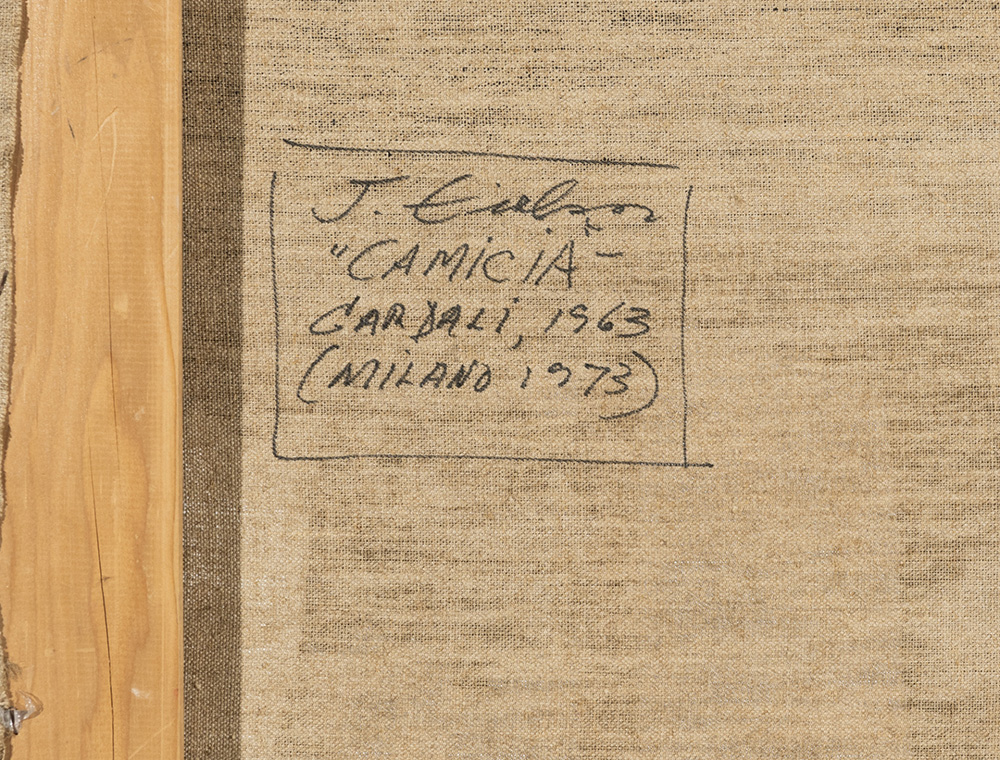 J. Eielson
"CAMICIA"-
GARDALI, 1963
(MILANO 1973)